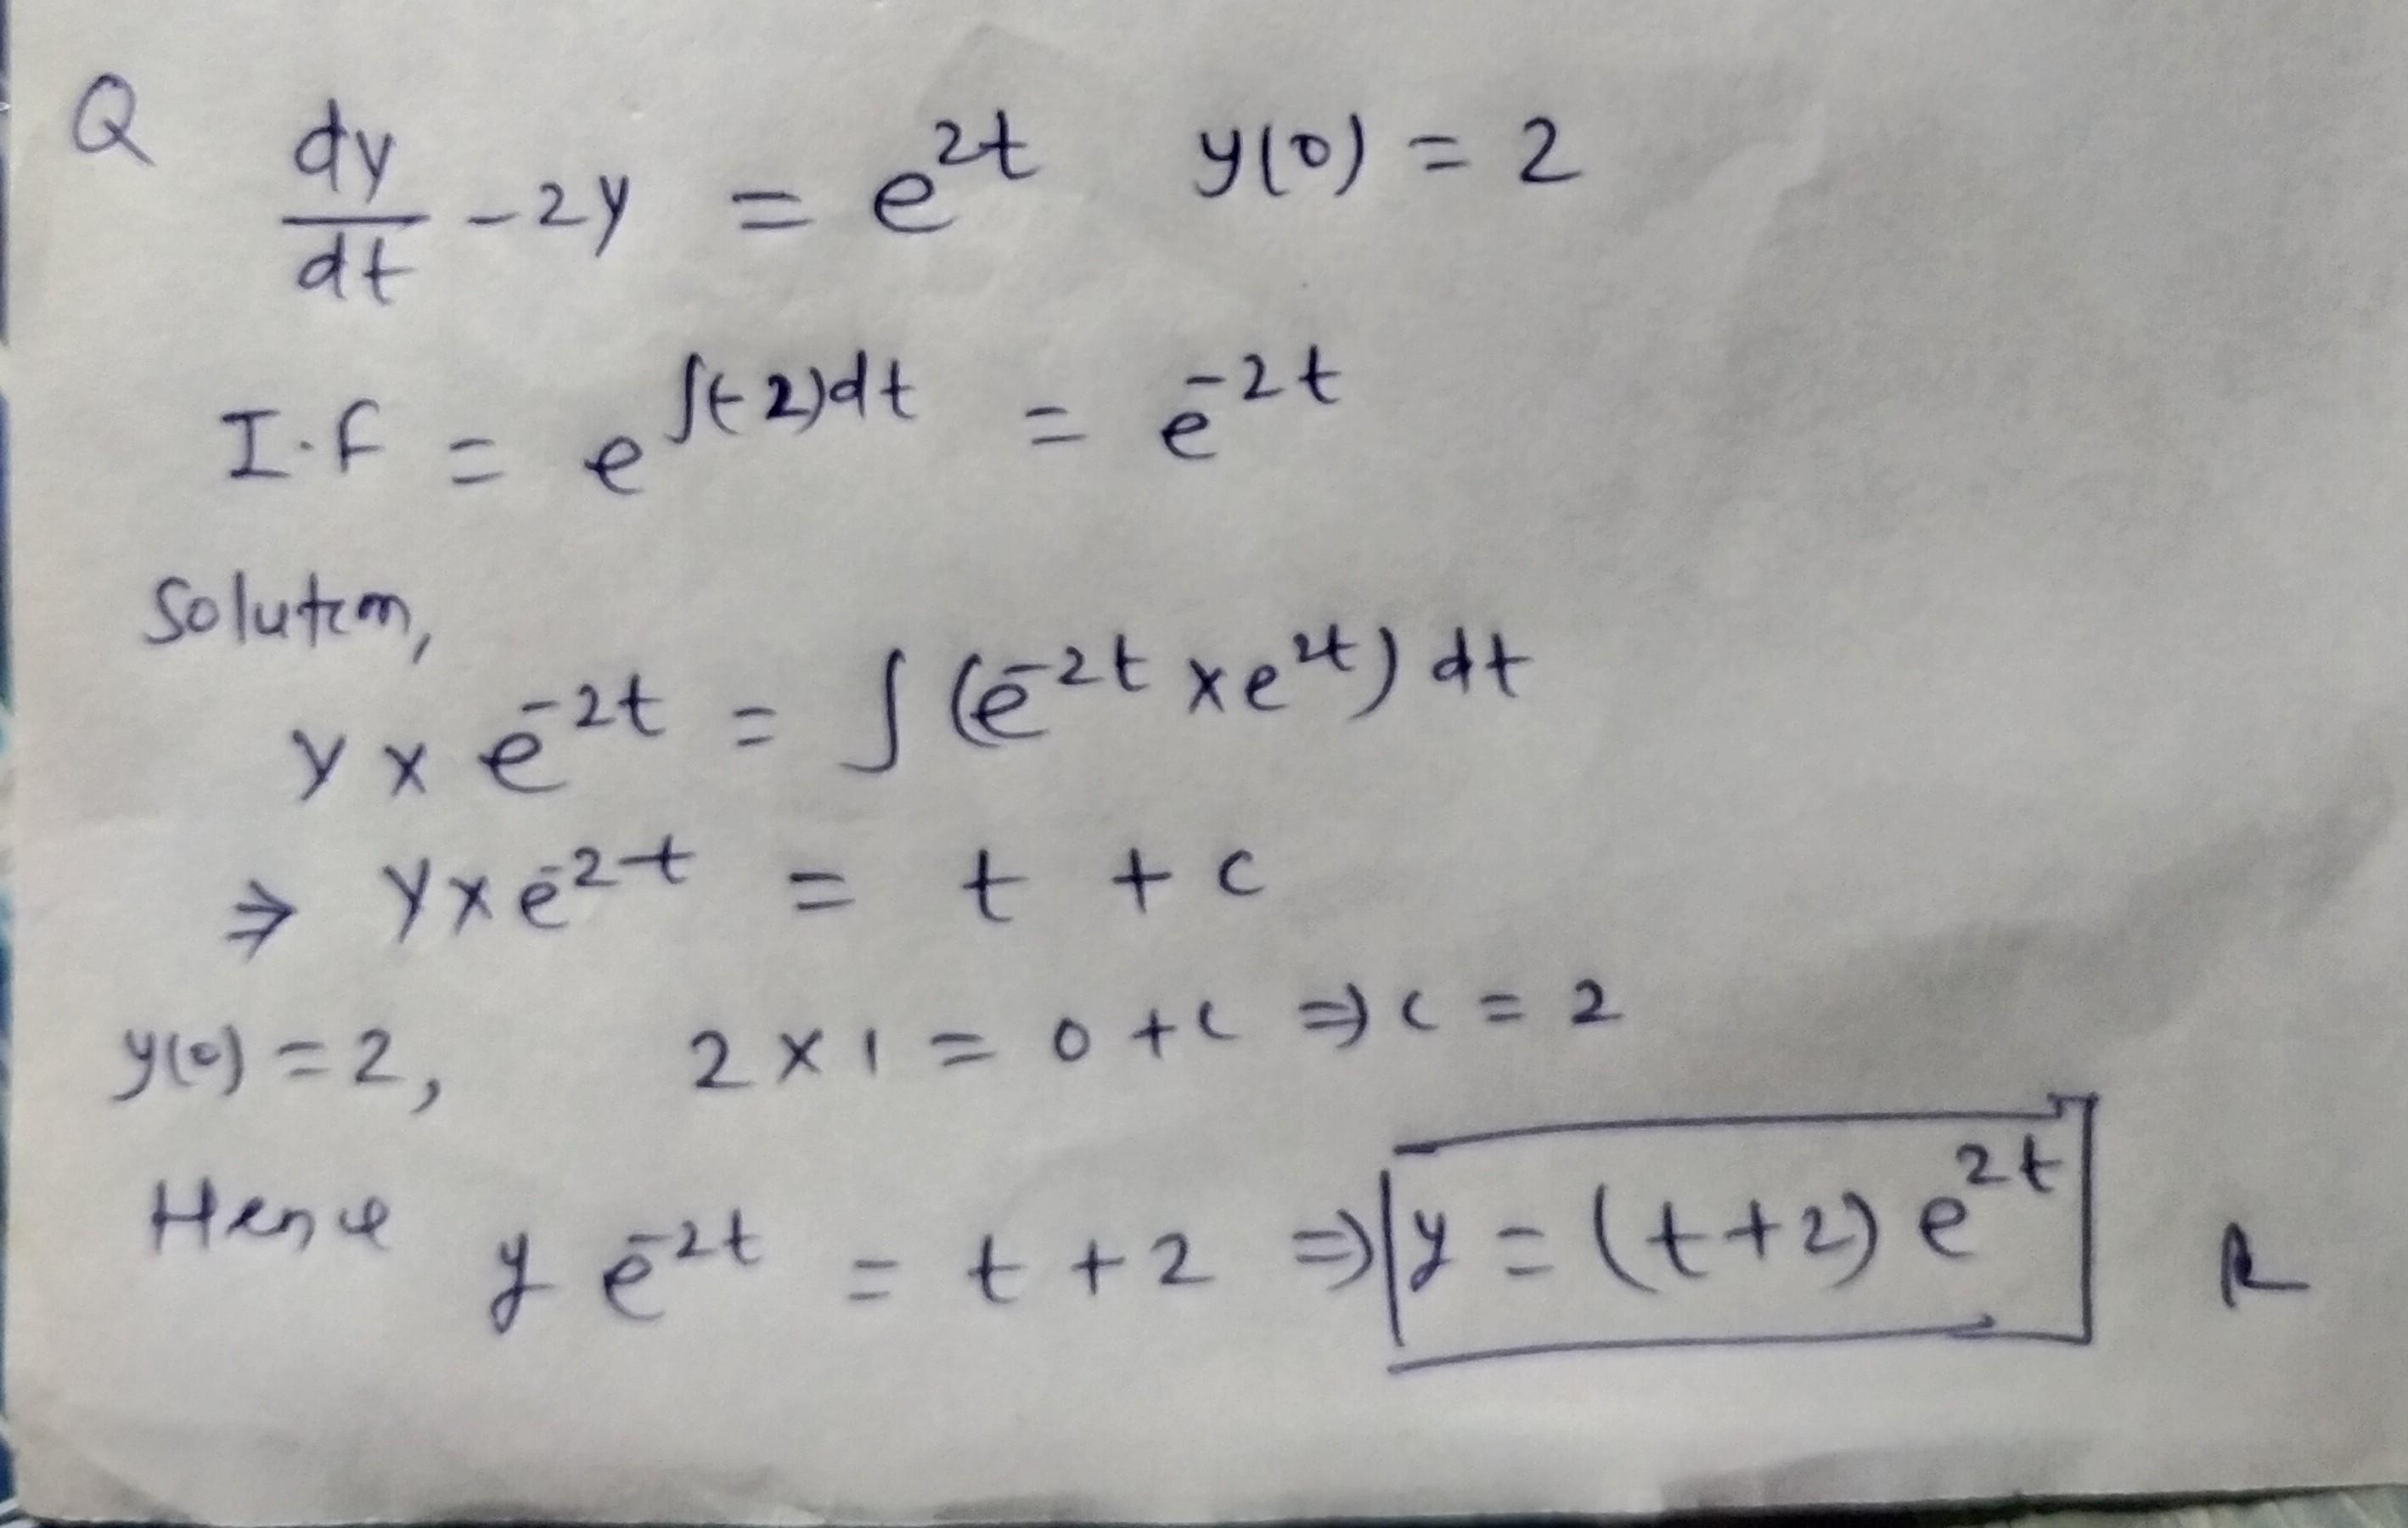 Q dy/dt - 2y = e^2t y(0) = 2
I.F = e^∫(-2)dt = e^-2t
Solution,
y × e^-2t = ∫(e^-2t × e^2t) dt
⇒ y × e^-2t = t + c
y(0) = 2, 2 × 1 = 0 + c ⇒ c = 2
Hence y e^-2t = t + 2 ⇒ y = (t + 2) e^2t